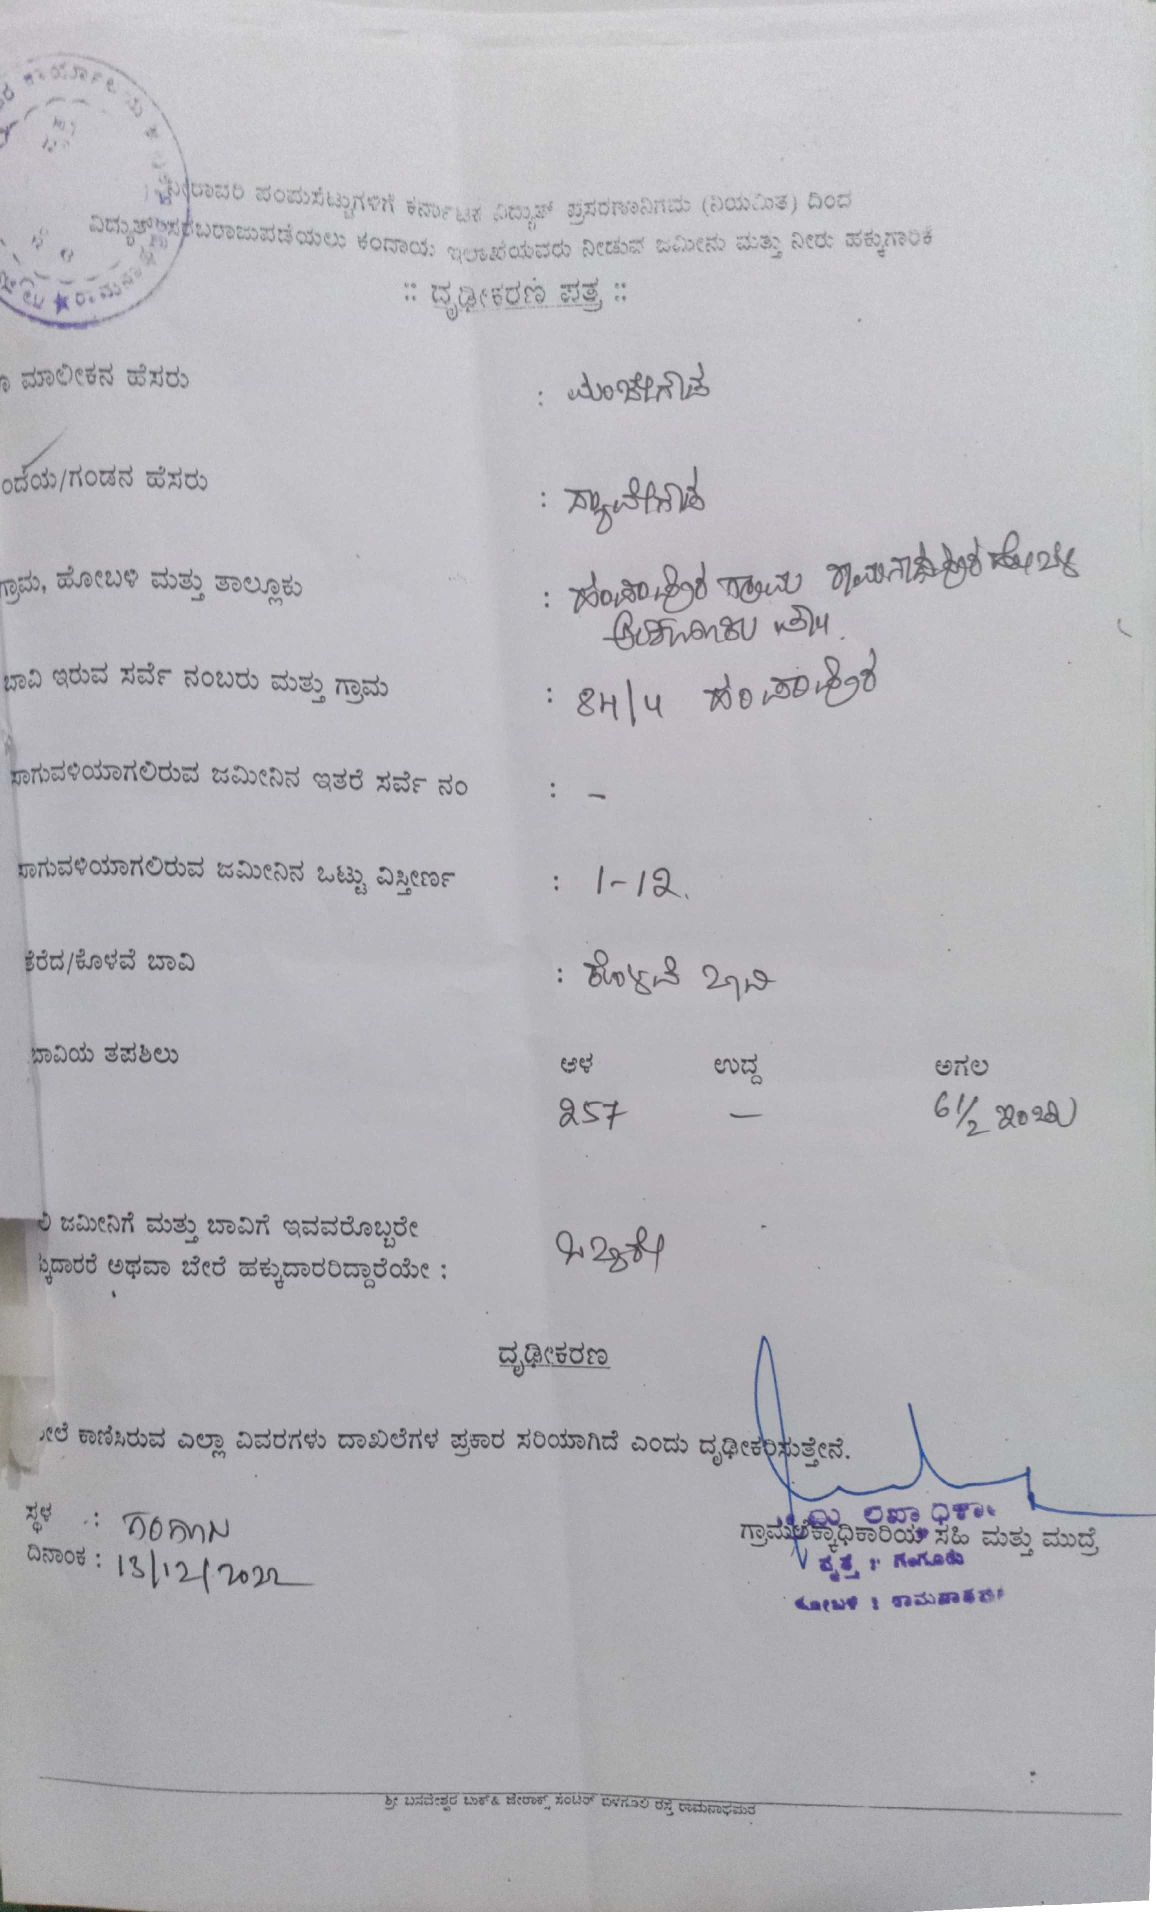 ನೀರಾವರಿ ಪಂಪುಸೆಟ್ಟುಗಳಿಗೆ ಕರ್ನಾಟಕ ವಿದ್ಯುತ್ ಪ್ರಸರಣಾನಿಗಮ (ನಿಯಮಿತ) ದಿಂದ
ವಿದ್ಯುತ್ ಸರಬರಾಜುಪಡೆಯಲು ಕಂದಾಯ ಇಲಾಖೆಯವರು ನೀಡುವ ಜಮೀನು ಮತ್ತು ನೀರು ಹಕ್ಕುಗಾರಿಕೆ
:: ದೃಢೀಕರಣ ಪತ್ರ ::
ಮಾಲೀಕನ ಹೆಸರು : ಮಂಚೇಗೌಡ
ಂದೆಯ/ಗಂಡನ ಹೆಸರು : ಸ್ಯಾವೇಗೌಡ
ಗ್ರಾಮ, ಹೋಬಳಿ ಮತ್ತು ತಾಲ್ಲೂಕು : ಹಂಪಾಪುರ ಗ್ರಾಮ ರಾಮನಾಥಪುರ ಹೋಬಳಿ
ಅರಕಲಗೂಡು ತಾ||.
ಬಾವಿ ಇರುವ ಸರ್ವೆ ನಂಬರು ಮತ್ತು ಗ್ರಾಮ : 84/4 ಹಂಪಾಪುರ
ಸಾಗುವಳಿಯಾಗಲಿರುವ ಜಮೀನಿನ ಇತರೆ ಸರ್ವೆ ನಂ : –
ಸಾಗುವಳಿಯಾಗಲಿರುವ ಜಮೀನಿನ ಒಟ್ಟು ವಿಸ್ತೀರ್ಣ : 1-12.
ತೆರೆದ/ಕೊಳವೆ ಬಾವಿ : ಕೊಳವೆ ಬಾವಿ
ಬಾವಿಯ ತಪಶಿಲು ಆಳ ಉದ್ದ ಅಗಲ
257 – 6 1/2 ಇಂಚು
ಜಮೀನಿಗೆ ಮತ್ತು ಬಾವಿಗೆ ಇವವರೊಬ್ಬರೇ
ಕ್ಕುದಾರರೆ ಅಥವಾ ಬೇರೆ ಹಕ್ಕುದಾರರಿದ್ದಾರೆಯೇ : ಒಬ್ಬರೇ
ದೃಢೀಕರಣ
ಮೇಲೆ ಕಾಣಿಸಿರುವ ಎಲ್ಲಾ ವಿವರಗಳು ದಾಖಲೆಗಳ ಪ್ರಕಾರ ಸರಿಯಾಗಿದೆ ಎಂದು ದೃಢೀಕರಿಸುತ್ತೇನೆ.
ಸ್ಥಳ : ಗಂಗೂರು
ದಿನಾಂಕ : 13/12/2022
ಗ್ರಾಮಲೆಕ್ಕಾಧಿಕಾರಿಯ ಸಹಿ ಮತ್ತು ಮುದ್ರೆ
ವೃತ್ತ : ಗಂಗೂರು
ಹೋಬಳಿ : ರಾಮನಾಥಪುರ
ಶ್ರೀ ಬಸವೇಶ್ವರ ಬುಕ್ & ಜೇರಾಕ್ಸ್ ಸೆಂಟರ್ ಬಿಳಗೂಲಿ ರಸ್ತೆ ರಾಮನಾಥಪುರ